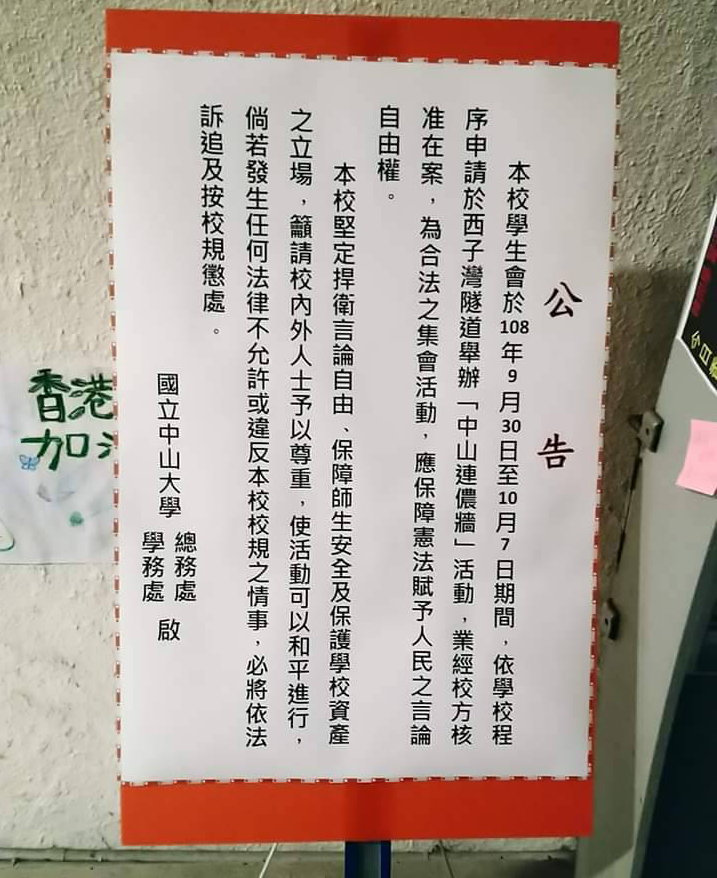 公告
本校學生會於108年9月30日至10月7日期間，依學校程
序申請於西子灣隧道舉辦「中山連儂牆」活動，業經校方核
准在案，為合法之集會活動，應保障憲法賦予人民之言論
自由權。
本校堅定捍衛言論自由、保障師生安全及保護學校資產
之立場，籲請校內外人士予以尊重，使活動可以和平進行，
倘若發生任何法律不允許或違反本校校規之情事，必將依法
訴追及按校規懲處。
國立中山大學
總務處
學務處
啟
香港
加
今日